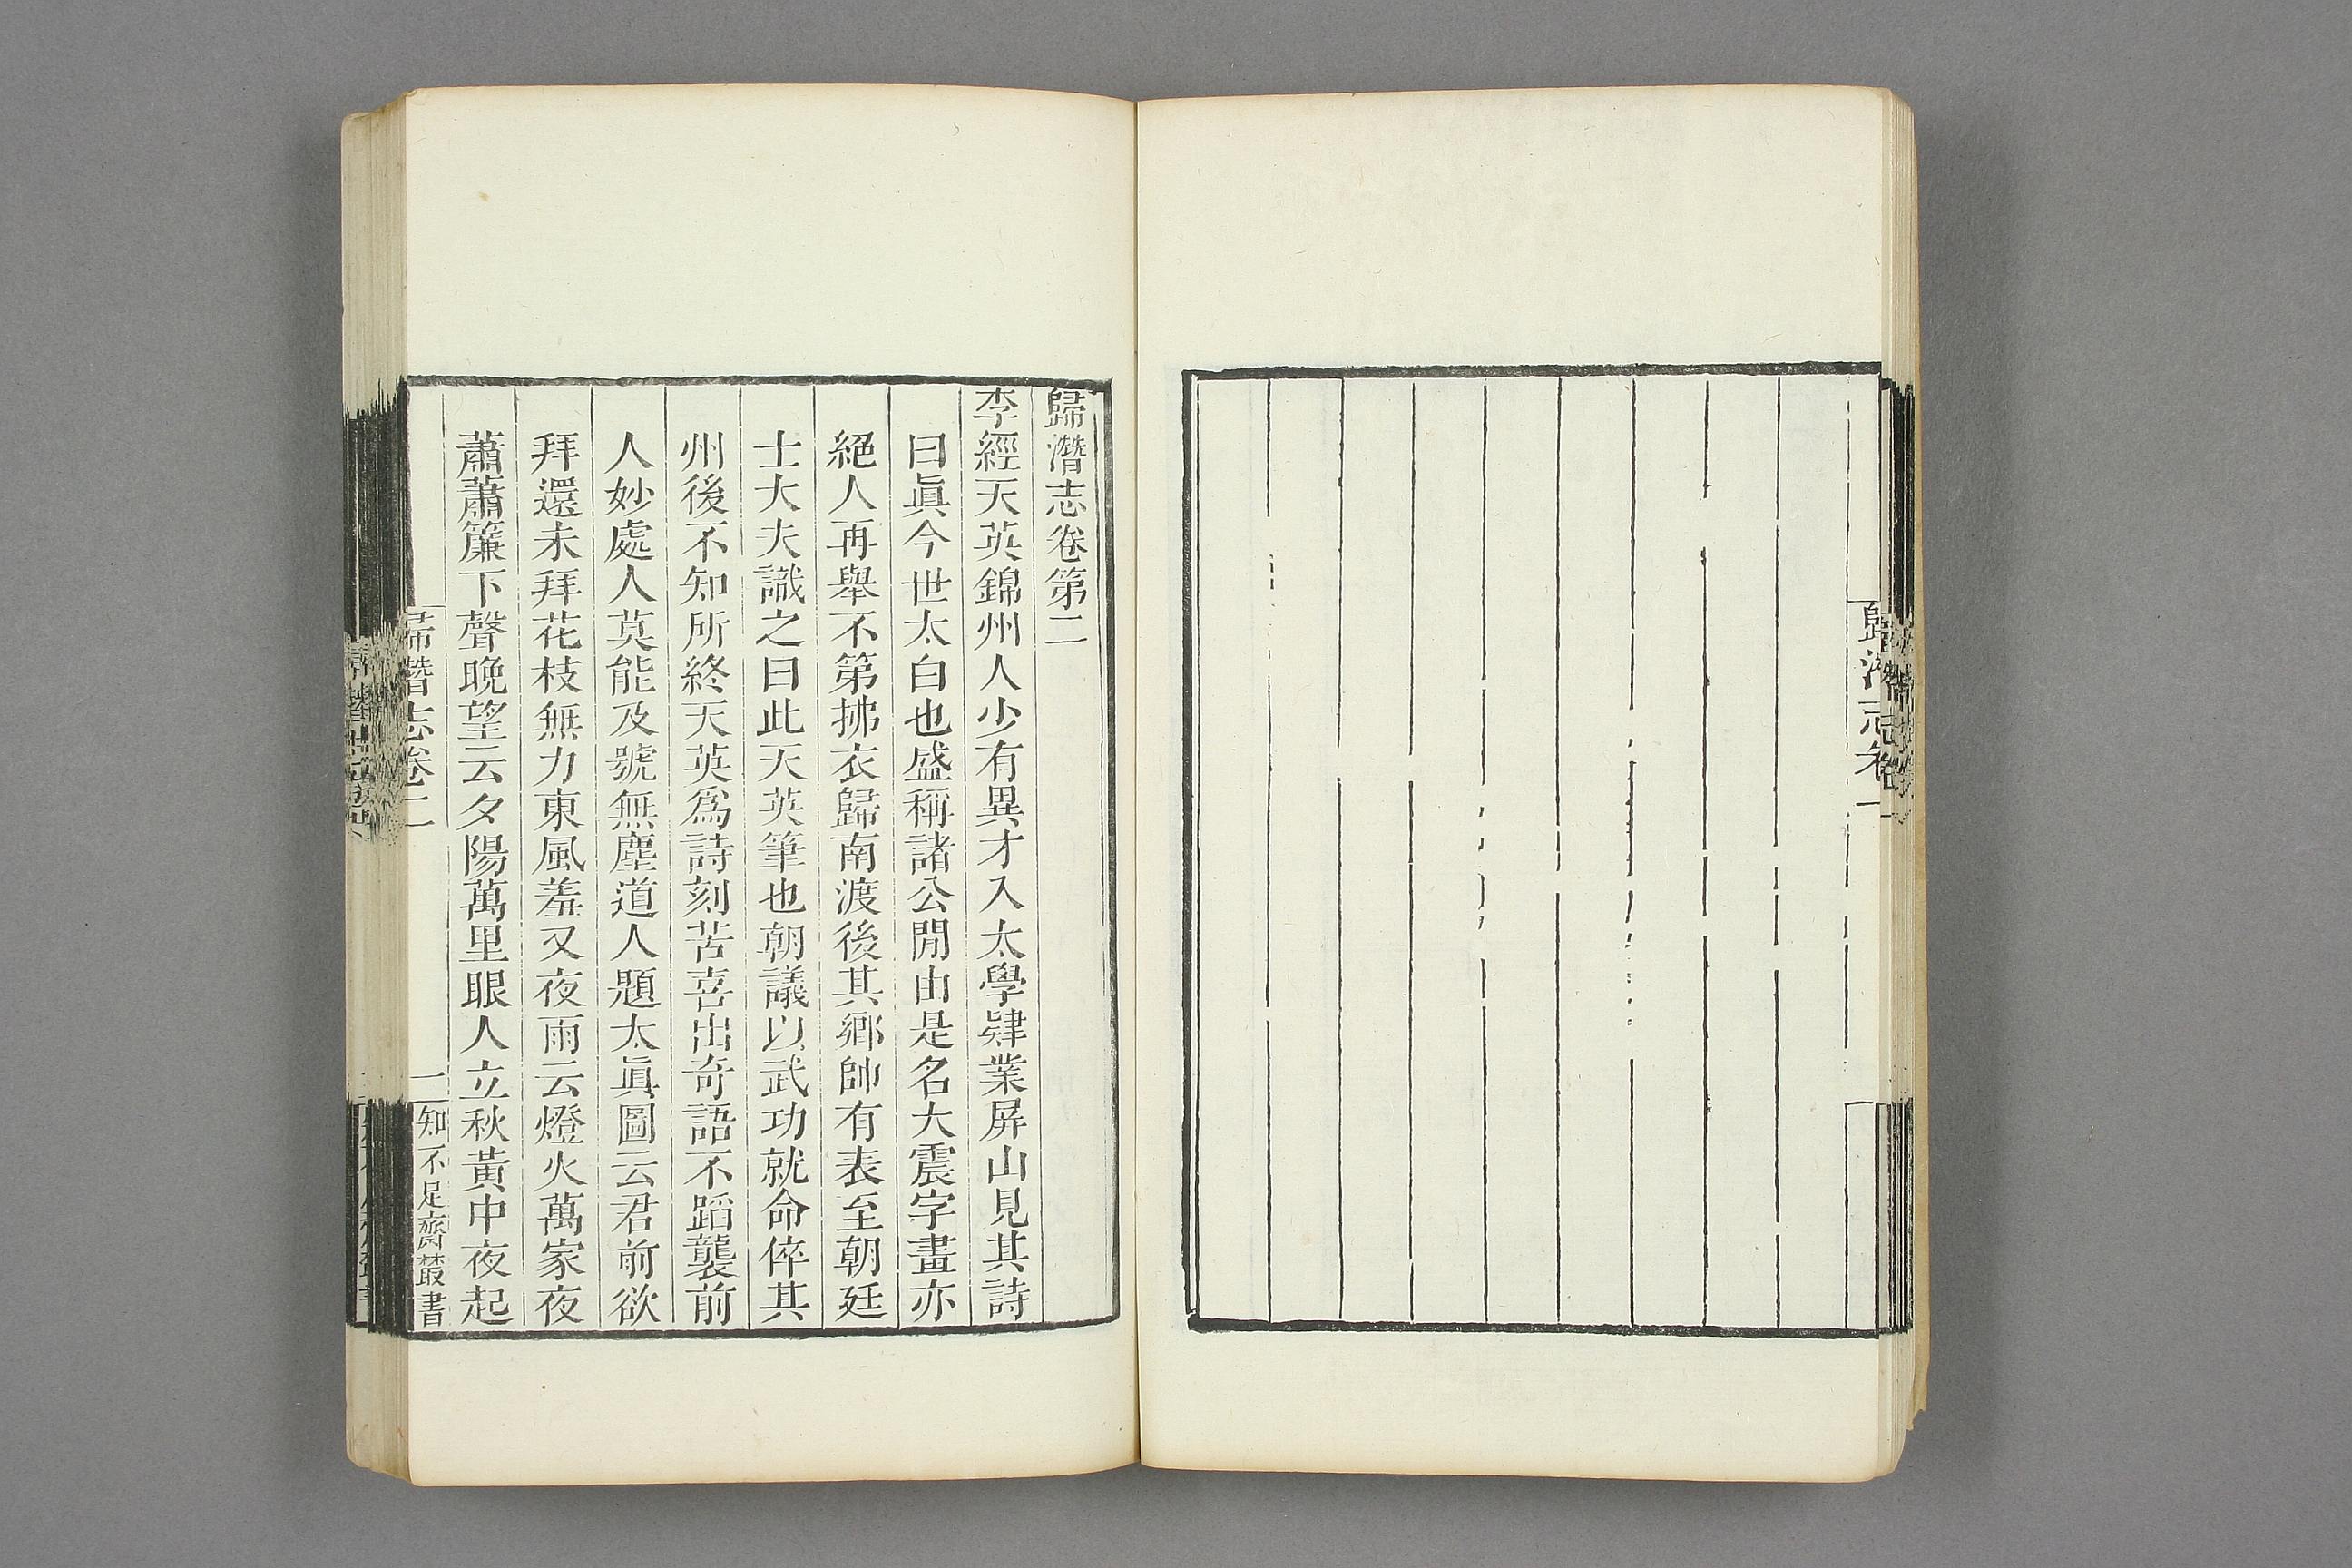 歸潛志卷一
歸潛志卷第二
李經天英錦州人少有異才入太學肄業屏山見其詩
曰眞今世太白也盛稱諸公閒由是名大震字畫亦
絕人再舉不第拂衣歸南渡後其鄉帥有表至朝廷
士大夫識之曰此天英筆也朝議以武功就命倅其
州後不知所終天英爲詩刻苦喜出奇語不蹈襲前
人妙處人莫能及號無塵道人題太眞圖云君前欲
拜還未拜花枝無力東風羞又夜雨云燈火萬家夜
蕭蕭簾下聲晚望云夕陽萬里眼人立秋黃中夜起
歸潛志卷二
一
知不足齋叢書